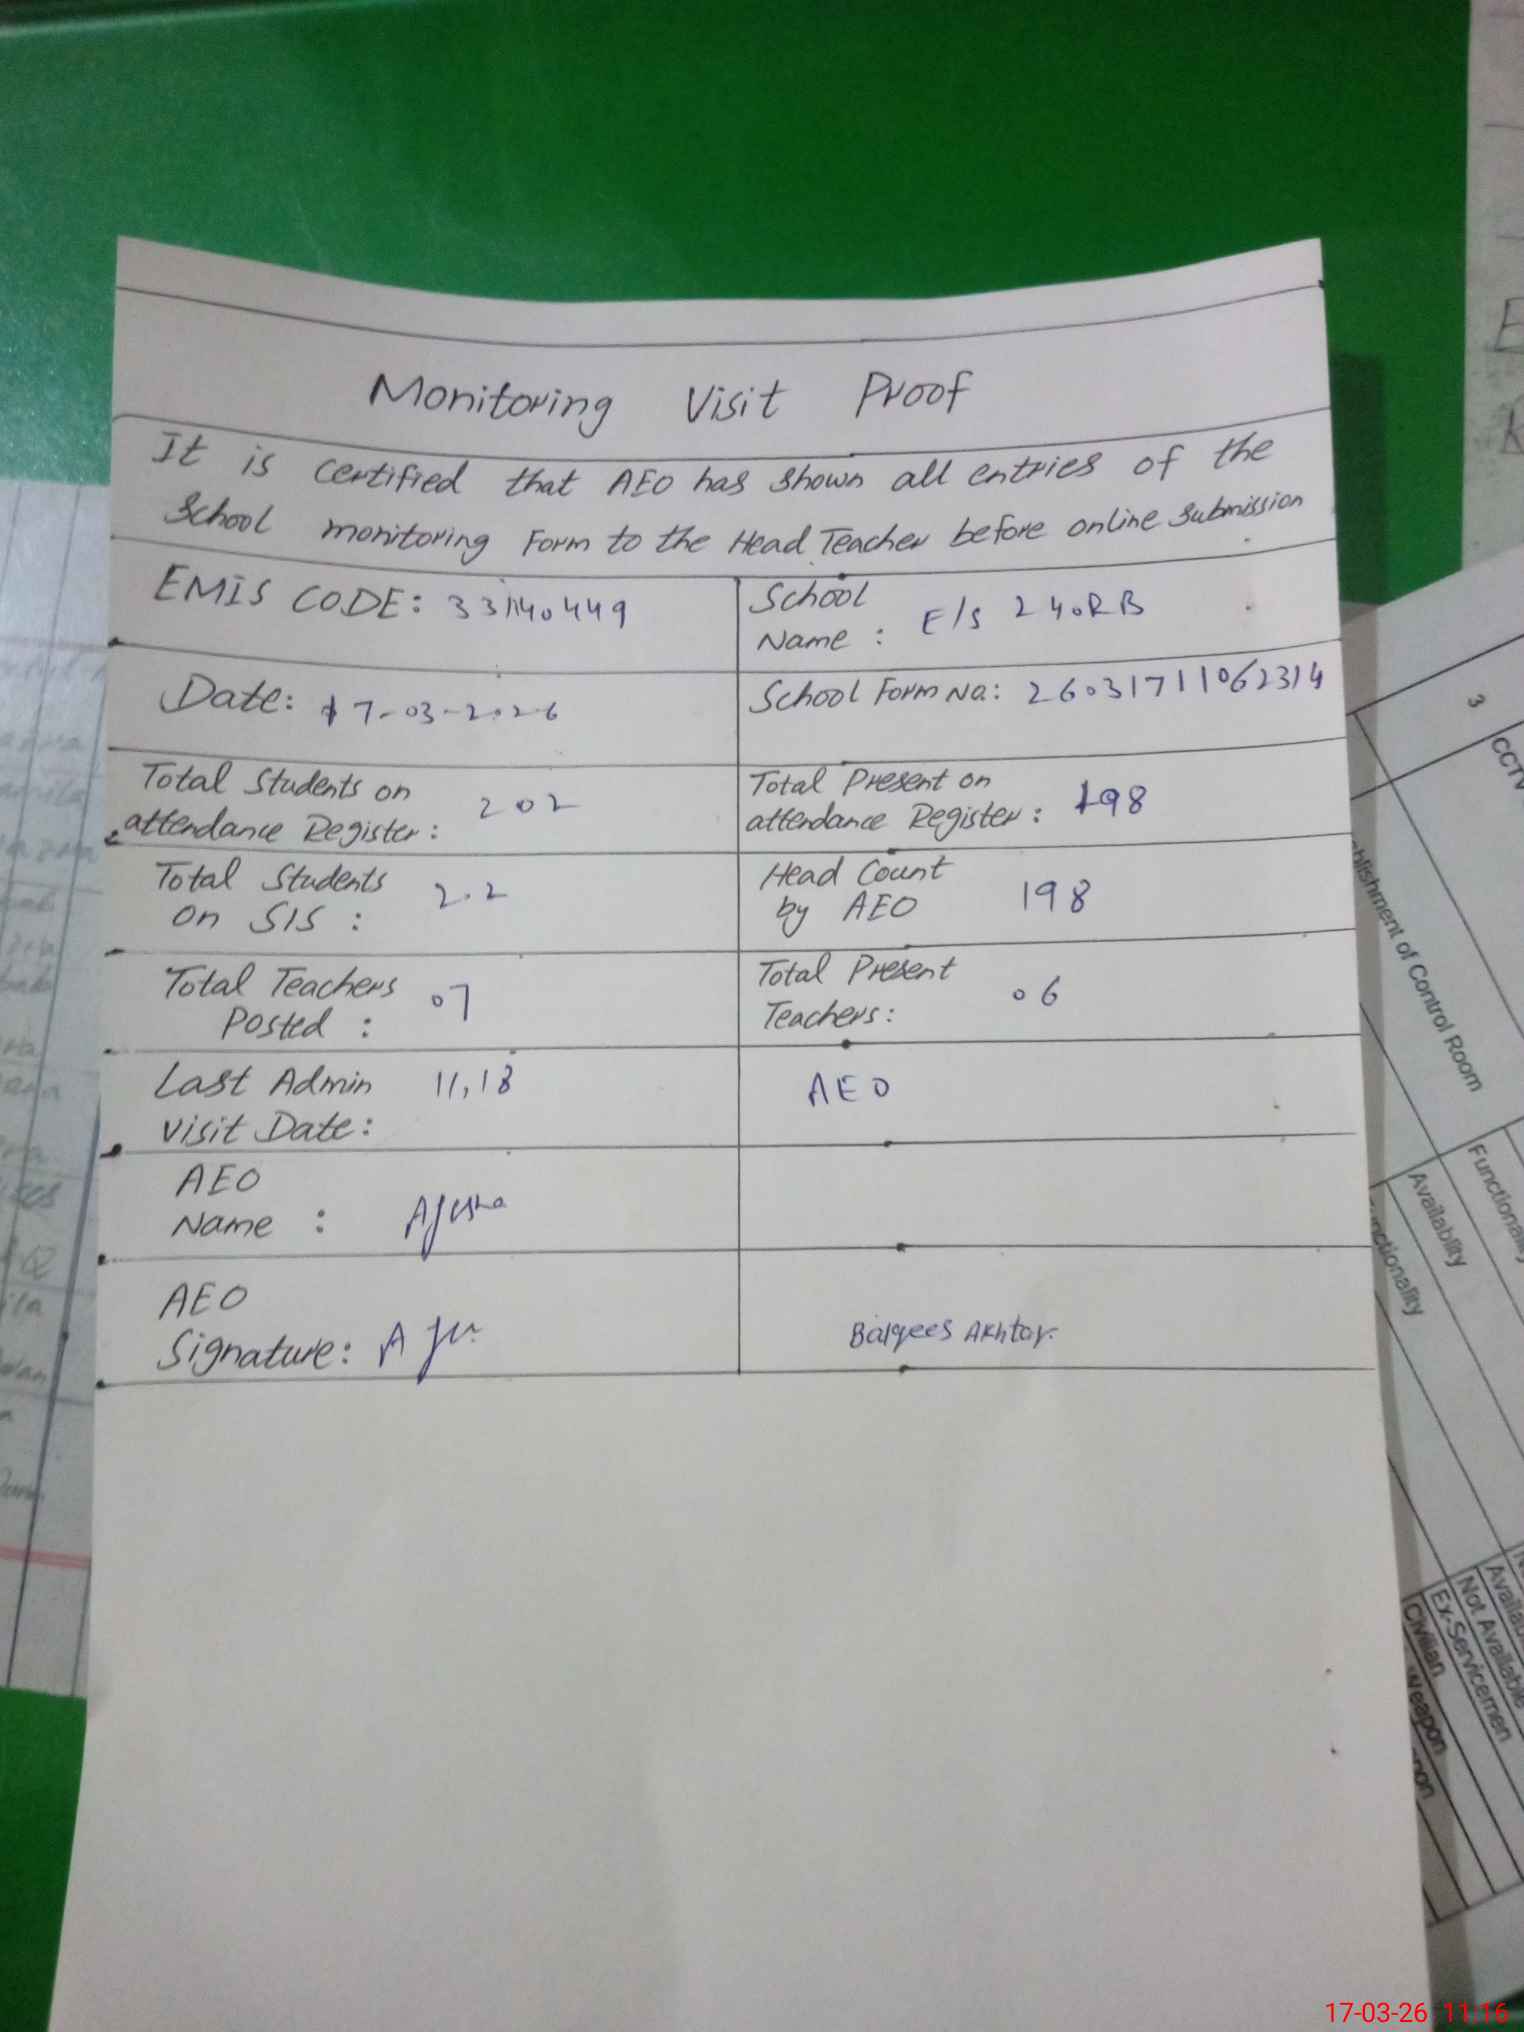 Monitoring Visit Proof
It is certified that AEO has shown all entries of the
School monitoring Form to the Head Teacher before online submission
EMIS CODE: 33140449
School
Name : E/S 240RB
Date: 17-03-2026
School Form No: 26031711062314
Total Students on
attendance Register: 202
Total Present on
attendance Register: 198
Total Students
on SIS : 202
Head Count
by AEO 198
Total Teachers
Posted : 07
Total Present
Teachers: 06
Last Admin
visit Date: 11,18
AEO
AEO
Name : Ayesha
AEO
Signature:
Balqees Akhtar.
3
CCTV
Establishment of Control Room
Functionality
Availability
Functionality
Available
Not Available
Ex-Servicemen
Civilian
Weapon
17-03-26 11:16